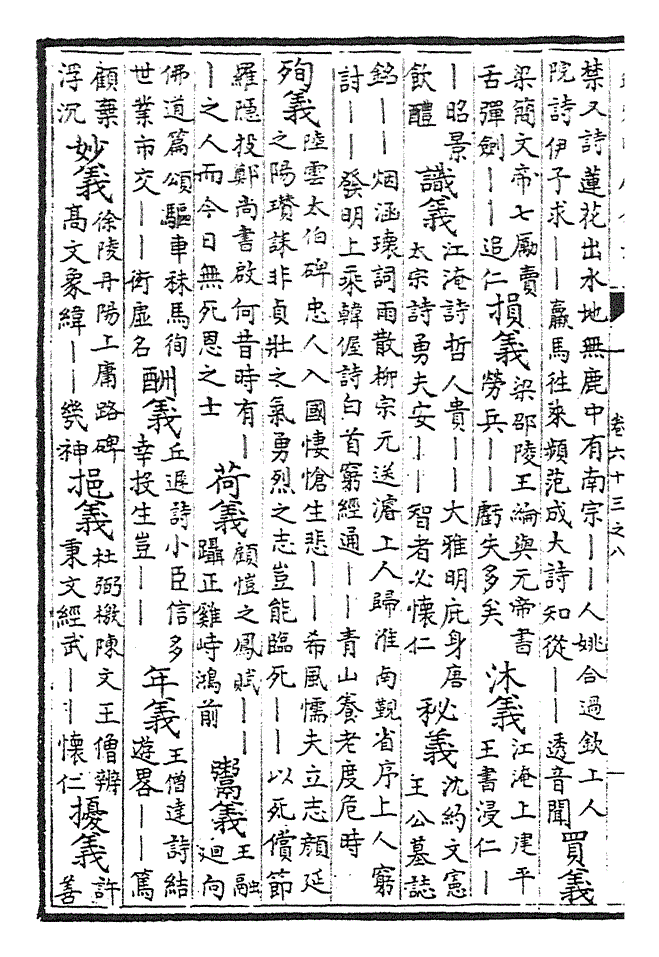 禁又詩蓮花出水地無鹿中有南宗——人姚合過欽上人
院詩伊子求——羸馬往來頻范成大詩知從——透音聞
買義
梁簡文帝七勵賣
舌彈劍——追仁
損義
梁邵陵王綸與元帝書
勞兵——虧失多矣
沐義
江淹上建平
王書浸仁—
—昭景
飲醴
識義
江淹詩哲人貴——大雅明庇身唐
太宗詩勇夫安——智者必懷仁
秘義
沈約文憲
王公墓誌
銘——烟涵壞詞雨散柳宗元送濬上人歸淮南覲省序上人窮
討——發明上乘韓偓詩白首窮經通——青山養老度危時
殉義
陸雲太伯碑忠人入國悽愴生悲——希風懦夫立志顏延
之陽瓚誄非貞壯之氣勇烈之志豈能臨死——以死償節
羅隱投鄭尚書啟何昔時有—
—之人而今日無死恩之士
荷義
顧愷之鳳賦——
躡正雞峙鴻前
鬻義
王融
迴向
佛道篇頌驅車秣馬徇
世業市交——衒虛名
酬義
丘遲詩小臣信多
幸投生豈——
年義
王僧達詩結
遊畧——篤
顧棄
浮沉
妙義
徐陵丹陽上庸路碑
高文象緯——幾神
挹義
杜弼檄陳文王僧辨
秉文經武——懷仁
擾義
許
善
卷六十三之八
一